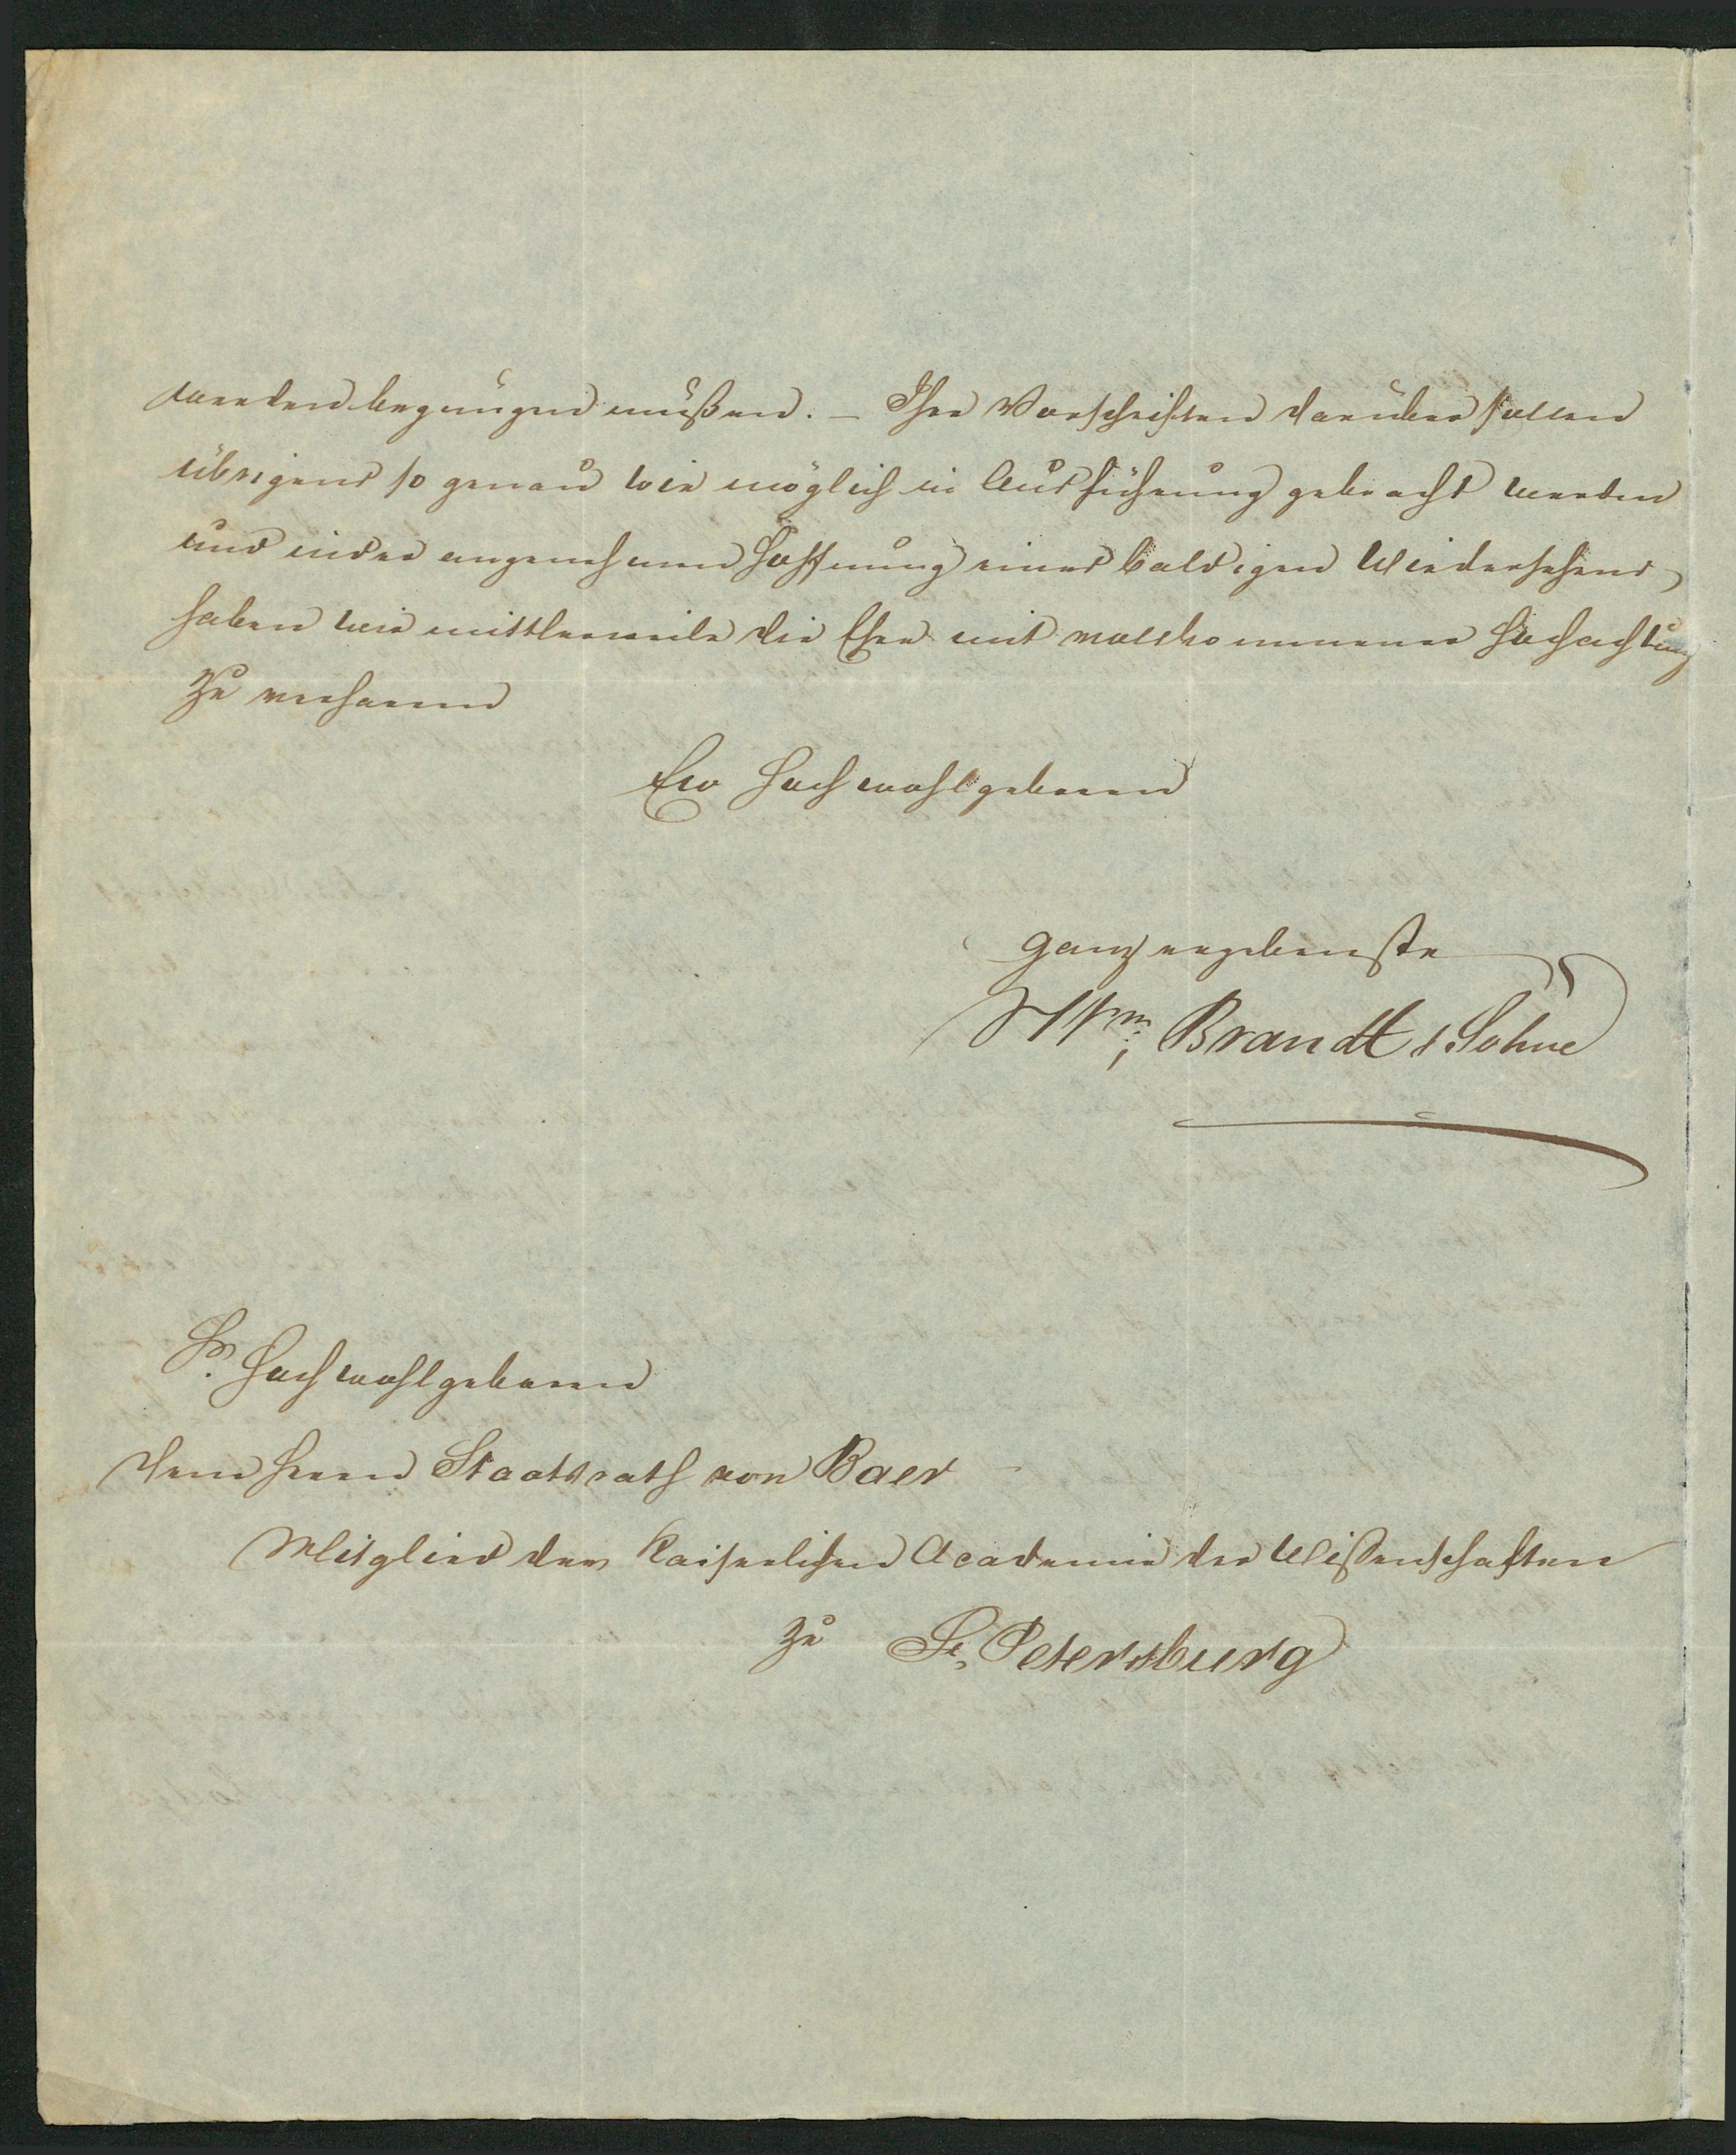 werden begnügen müßen. – Ihre Vorschriften darüber sollen
übrigens so genau wie möglich in Ausführung gebracht werden
und in der angenehmen Hoffnung eines baldigen Wiedersehens,
haben wir mittlerweile die Ehre mit vollkommener Hochachtung
zu verharren
Ew Hochwohlgeboren
ganz ergebenste
Wm. Brandt s. Söhne
Sr. Hochwohlgeboren
dem Herrn Staatsrath von Baer
Mitglied der Kaiserlichen Academie der Wißenschaften
zu St. Petersburg